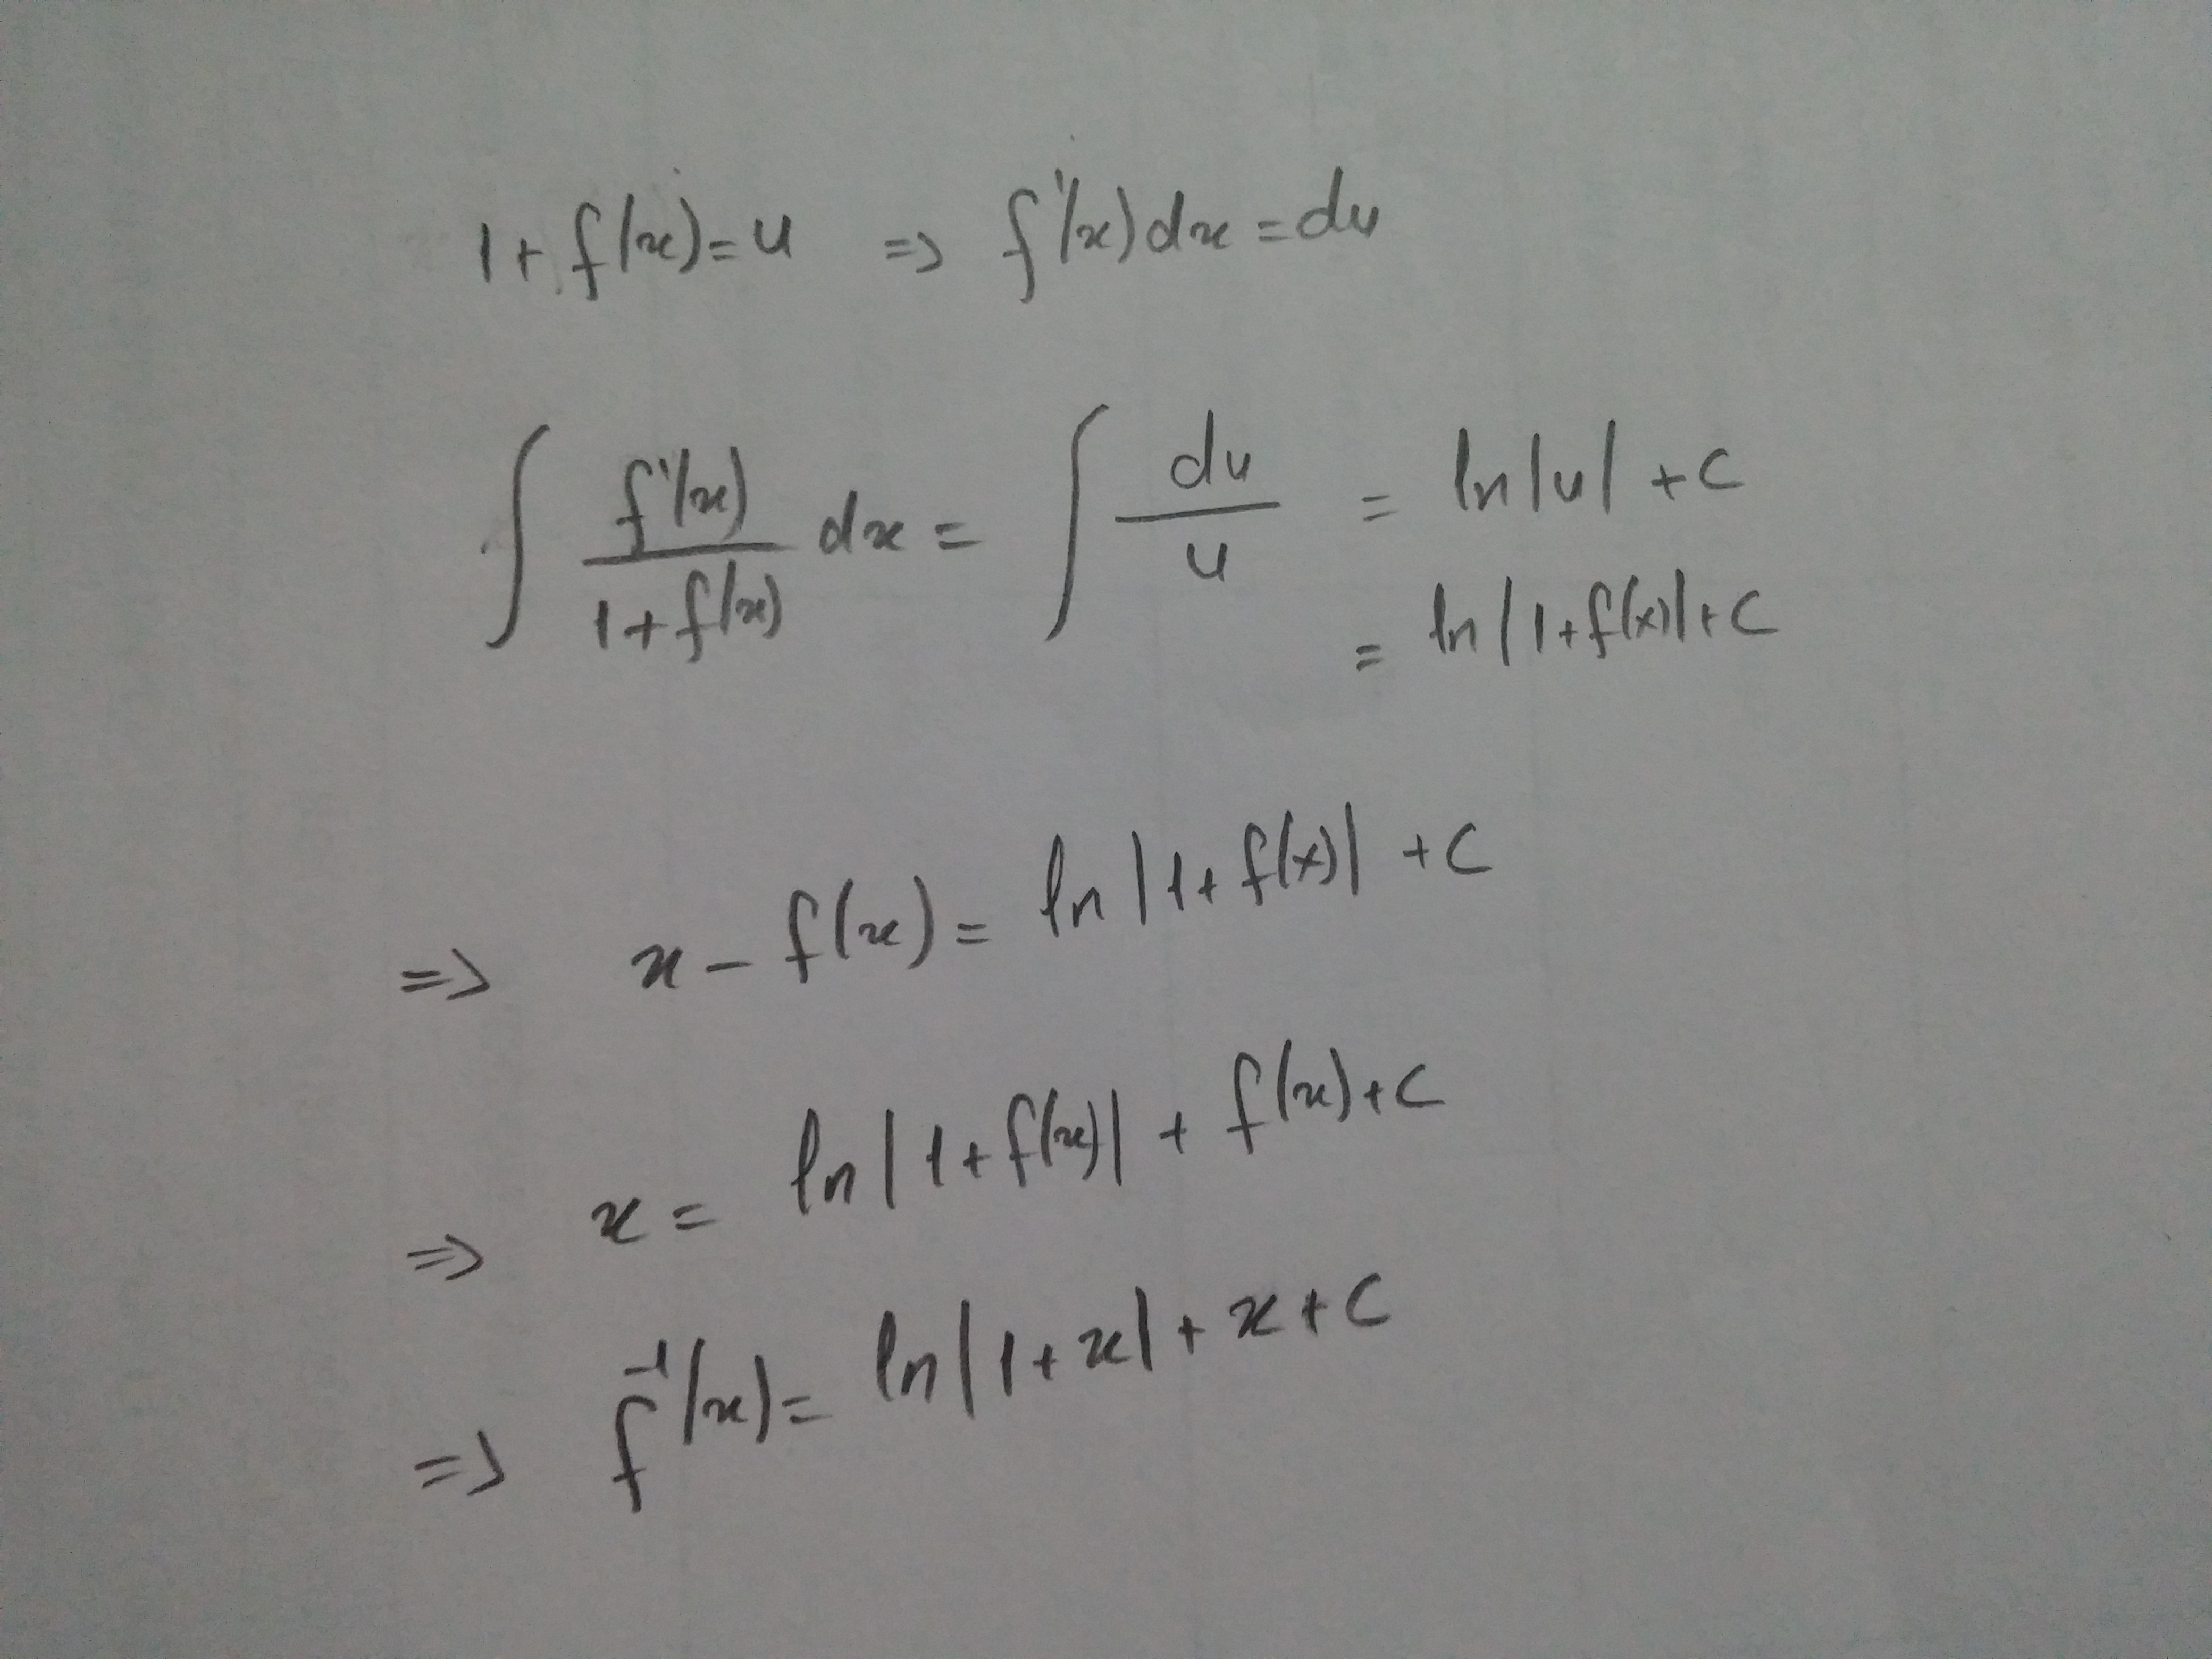 1 + f(x) = u => f'(x) dx = du
∫ f'(x) / 1 + f(x) dx = ∫ du / u = ln|u| + c
= ln|1 + f(x)| + c
=> x - f(x) = ln|1 + f(x)| + c
=> x = ln|1 + f(x)| + f(x) + c
=> f⁻¹(x) = ln|1 + x| + x + c